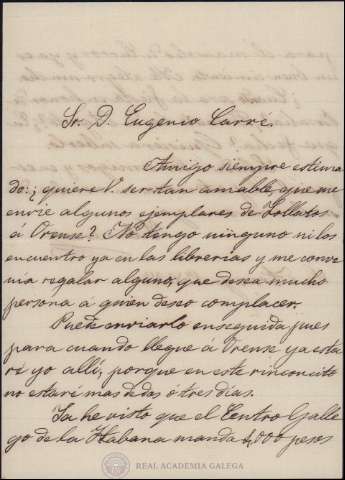 Sr. D. Eugenio Carré.
Amigo siempre estima
do: ¿quiere V. ser tan amable, que me
envie algunos ejemplares de Follatos
á Orense? No tengo ninguno ni los
encuentro ya en las librerias y me conve
nia regalar alguno, que desea mucho
persona á quien deseo complacer.
Puede enviarlo enseguida pues
para cuando llegue á Orense ya esta
ré yo allí, porque en este rinconcito
no estaré mas de dos ó tres dias.
Ya he visto que el Centro Galle
go de la Habana manda 4,000 pesos
REAL ACADEMIA GALEGA